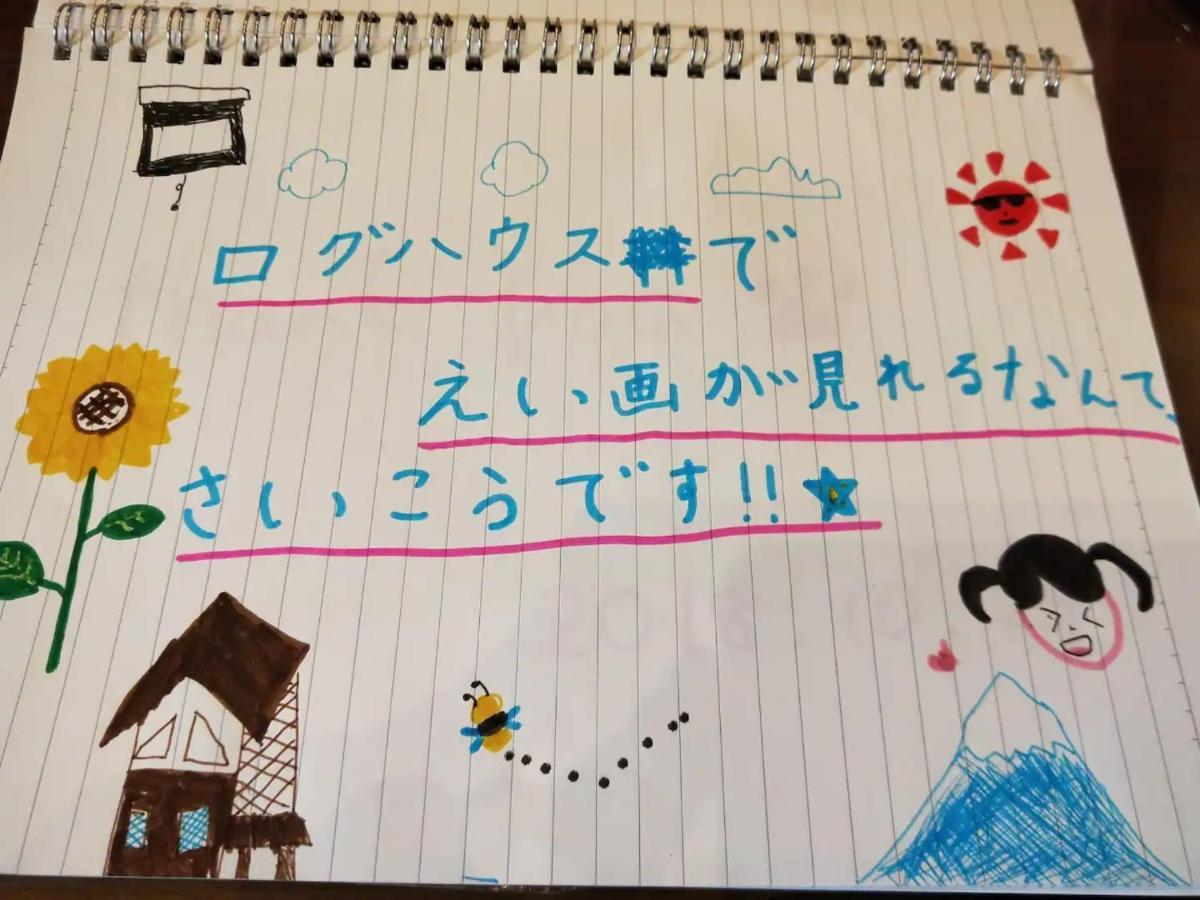 ログハウスで
えい画が見れるなんて、
さいこうです!!